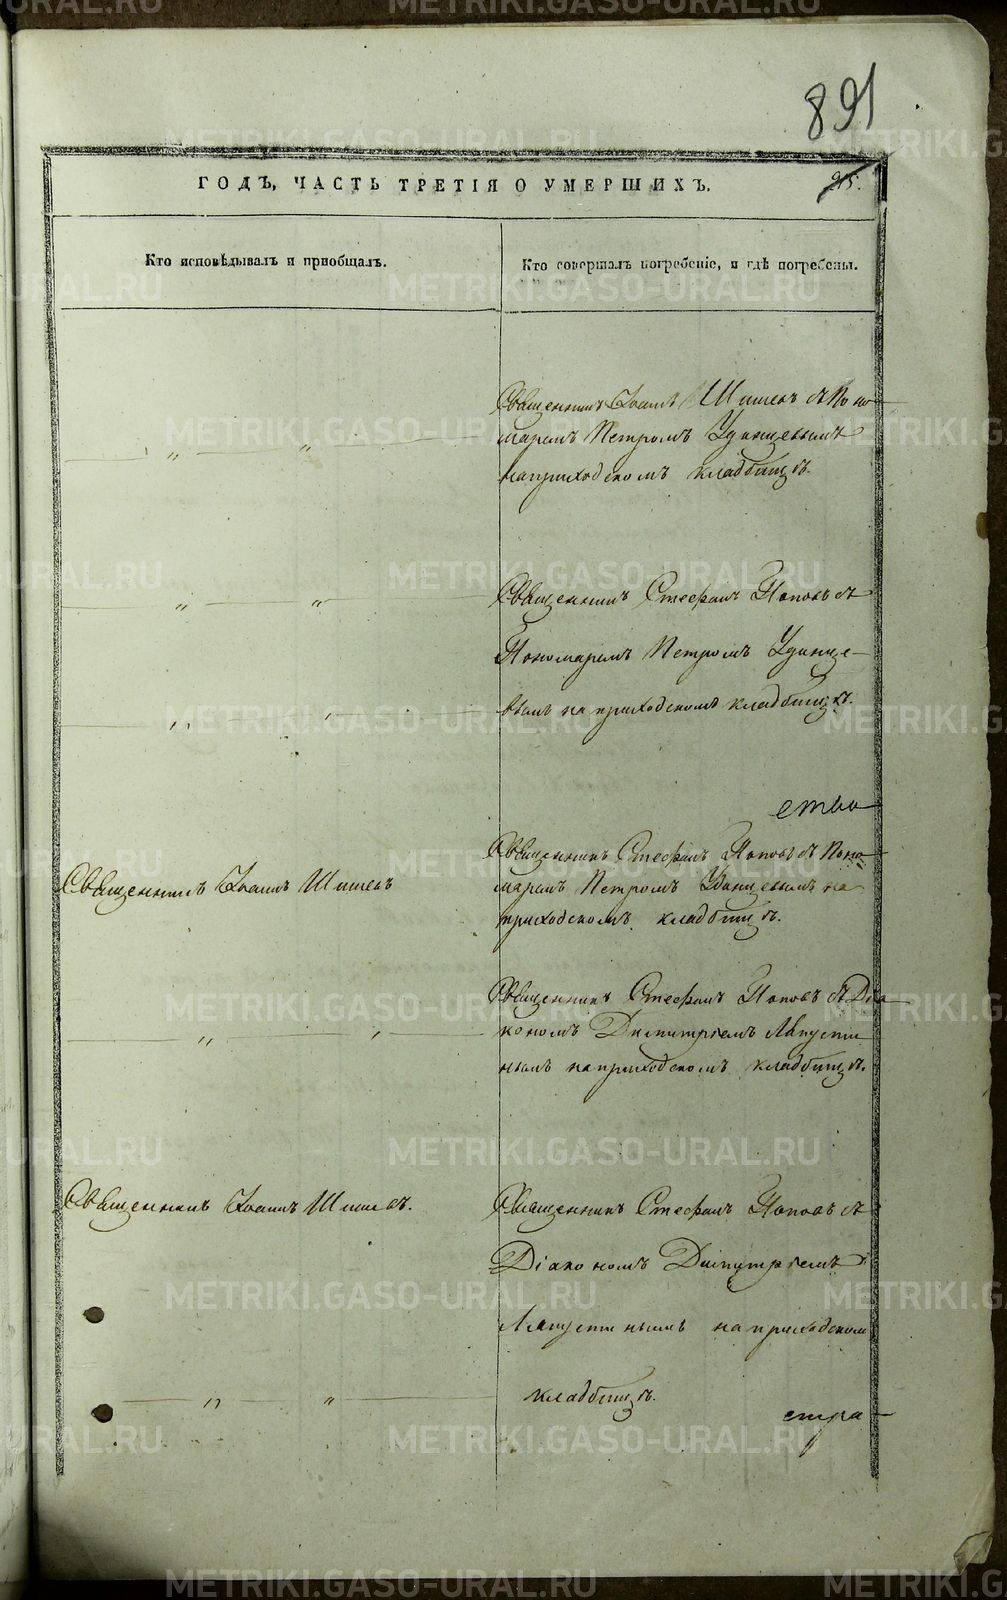 891
ГОДЪ, ЧАСТЬ ТРЕТІЯ О УМЕРШИХЪ.
Кто исповѣдывалъ и пріобщалъ.
Кто совершалъ погребеніе, и гдѣ погребены.
Священникъ Іоаннъ Шишевъ съ Поно
маремъ Петромъ Удинцевымъ
на приходскомъ кладбищѣ.
Священникъ Стефанъ Поповъ съ
Пономаремъ Петромъ Удинце-
вымъ на приходскомъ кладбищѣ.
ство
Священникъ Іоаннъ Шишевъ
Священникъ Стефанъ Поповъ съ Поно
маремъ Петромъ Удинцевымъ на
приходскомъ кладбищѣ.
Священникъ Стефанъ Поповъ съ Діа
кономъ Димитріемъ Августи
нымъ на приходскомъ кладбищѣ.
Священникъ Іоаннъ Шишевъ.
Священникъ Стефанъ Поповъ съ
Діакономъ Димитріемъ
Августинымъ на приходскомъ
кладбищѣ.
стра
METRIKI.GASO-URAL.RU